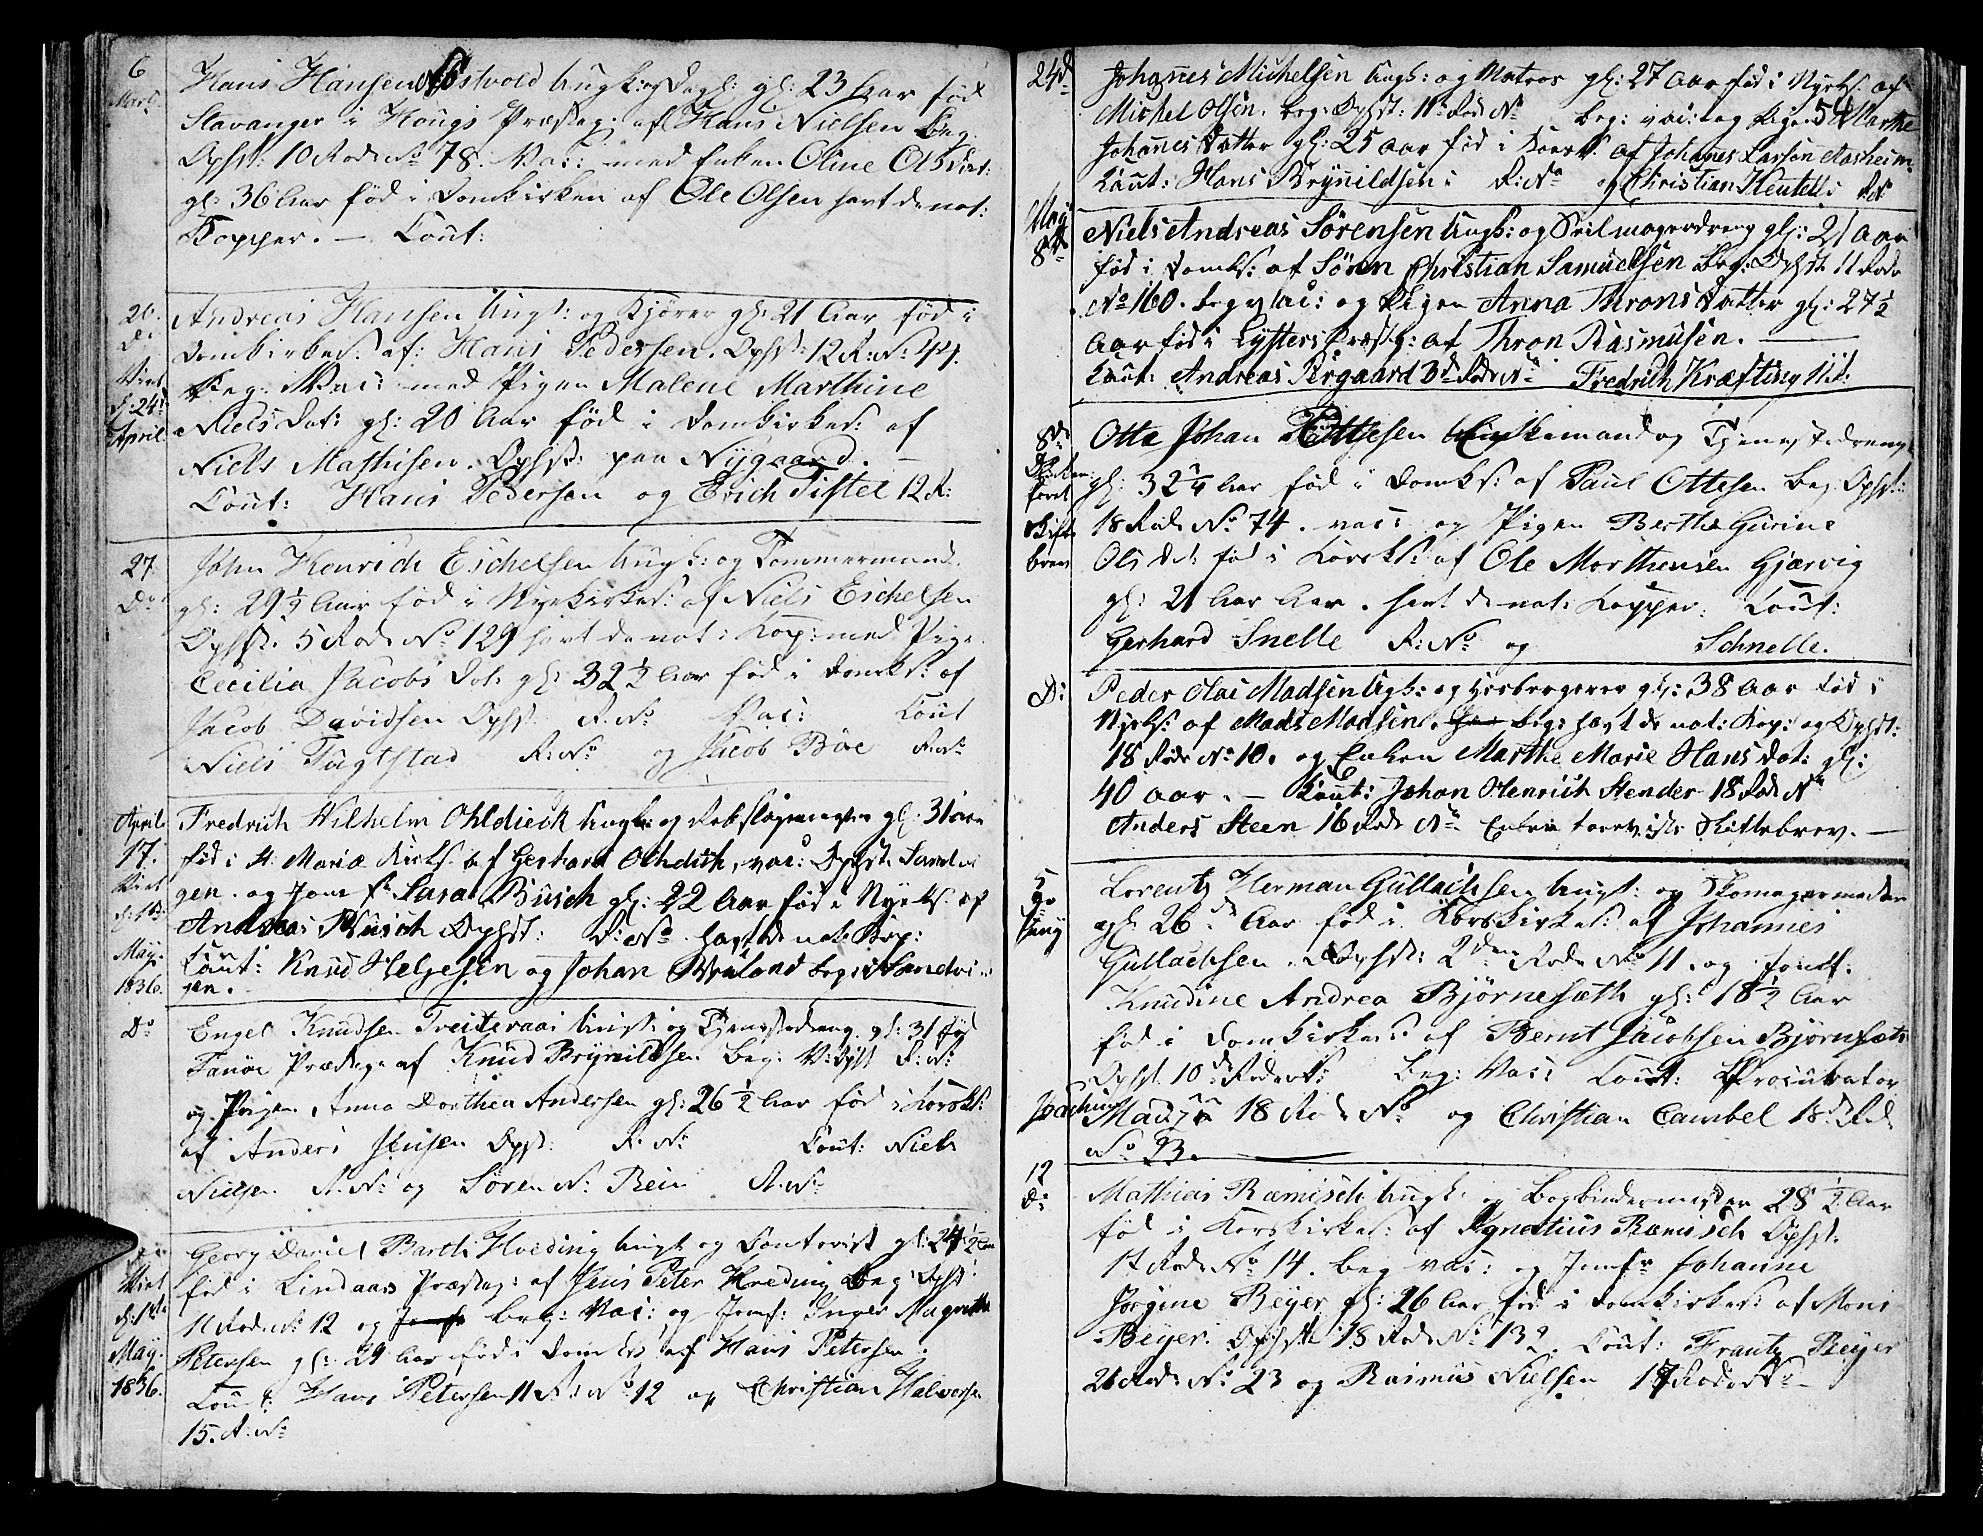 6
Marts
Hans Hansen Østvold Ungk: og Dagl: gl: 23 Aar fød
Stavanger i Hougs Præsteg: af Hans Nielsen Beg:
Ophst: 10 Rode No 78. Vac: med Enken Oline Olsdat:
gl: 36 Aar fød i Domkirken af Ole Olsen havt de nat:
Kopper. – Caut:
20.
Do
Viet
d: 24d
April
Andreas Hansen Ungk: og Kjører gl: 21 Aar fød i
Domkirkes: af Hans Pedersen. Ophst: 12 R: No: 44.
Beg: Vac: med Pigen Malene Marthine
Niels Dat: gl: 20 Aar fød i Domkirkes: af
Niels Mathisen. Ophst: paa Nygaard. –
Caut: Hans Pedersen og Erich Tistel 12 R:
27.
Do
John Henrich Eschelsen Ungk: og Tømmermand
gl: 29½ Aar fød i Nyekirkes: af Niels Eschelsen
Ophst. 5 Rode No 129 havt de nat: Kop: med Pige
Cecilia Jacobs Dat: gl: 32½ Aar fød i Domks: af
Jacob Davidsen Ophst: R: No Vac: Caut
Niels Tugtstad R: No og Jacob Bøe R: No
April
17.
Viet
d: 1st
May.
1836.
Fredrich Wilhelm Ohldieck Ungk: og Rebslagermester gl: 31 Aar
fød i St. Mariæ Kirks. af Gerhard Ohldich, vac: Ophst. Sandvi
gen. og Jomfr. Sara Busch gl: 22 Aar fød i Nyeks. af
Andreas Busch Ophst: R: No havt de nat: Kop:
Caut: Knud Helgesen og Johan Wæland begge i Sandvi
gen.
Do
Engel Knudsen Treiteraas Ungk: og Tjenestedreng gl: 31 fød
Fanøe Præsteg: af Knud Brynildsen Beg: V: Ophst R: No:
og Pigen Anna Dorthea Andersen gl: 26½ Aar fød i Korsks:
af Anders Jensen Ophst: R: No Caut: Niels
Nielsen R: No: og Søren N: Rein R: No
Viet
d: 1ste
May.
1836.
Georg Daniel Barth Hveding Ungk og Contorist gl: 24½ Aar
fød i Lindaas Præsteg: af Jens Peter Hveding Beg: Ophst:
11 Rode No 12 og Jomfr Beg: Vac: og Jomf: Inger Magrethe
Petersen gl: 29 Aar fød i Domks af Hans Petersen.
Caut: Hans Petersen 11 R: No 12 og Christian Halvorsen
15. R: No
24d
Johannes Michelsen Ungk: og Matros gl: 27 Aar fød i Nyeks. af
Michel Olsen. beg: Ophst: 11te Rode No beg: vac: og Pigen Marthe
Johannes Datter gl: 25 Aar fød i af Johanes Larsen Aasheim.
Caut: Hans Brynildsen i R: No og Christian Heutel i R: No
May
8de
Niels Andreas Sørensen Ungk: og Seilmagerdreng gl: 21 Aar
fød i Domks: af Sören Christian Samuelsen beg: Ophst 11 Rode
No 160. beg Vac: og Pigen Anna Throns Datter gl: 27½
Aar fød i Lysters Præsteg: af Thron Rasmusen.
Caut: Andreas Birgaard 3d Rode No: Fredrich Kræfting 11 R:
8de
Otto Johan Ottesen Enkemand og Tjenestedreng
gl: 32¼ Aar fød i Domks: af Paul Ottesen Beg: Ophst:
18 Rode No 74. vac: og Pigen Berthe Gurine
Ols Dat: fød i Korsks: af Ole Morthensen Gjærvig
gl: 21 Aar Aar. havt de nat: Kopper. Caut:
Gerhard Snelle R: No og Schnelle.
Do
Peder Olai Madsen Ungk: og Huusbrygerer gl: 38 Aar fød i
Nyeks: af Mads Madsen. beg: havt de nat: Kop: og Ophst:
18 Rode No 10. og Enken Marthe Marie Hans Dat: gl:
40 Aar. – Caut: Johan Henrich Stender 18 Rode No
Anders Steen 16 Rode No Enken foreviste Skiftebrev. –
5
Juny
Lorentz Herman Gullachsen Ungk: og Skomagermester
gl: 26 Aar fød i Korskirkes: af Johannes
Gullachsen. Ophst: 2den Rode No 11. og Jomf:
Knudine Andrea Bjørnesæth gl: 18½ Aar
fød i Domkirkes: af Bernt Jacobsen Bjørnsæth
Ophst. 10de Rode No: Beg: Vac: Caut: Procurator
Joachim Madsen 18 Rode No og Christian Cambel 18de Rode
No 93.
12
Do
Mathias Ræmisch Ungk: og Bogbindermester 28½ Aar
fød i Korskirkes: af Ignatius Ræmisch Ophst.
1st Rode No 14. beg vac: og Jomfr Johanne
Jørgine Beyer gl: 26 Aar fød i Domkirkes: af Mons
Beyer. Ophst 18 Rode No 132. Caut: Frantz Beyer
21 Rode No 23 og Rasmus Nielsen 17 Rode No –